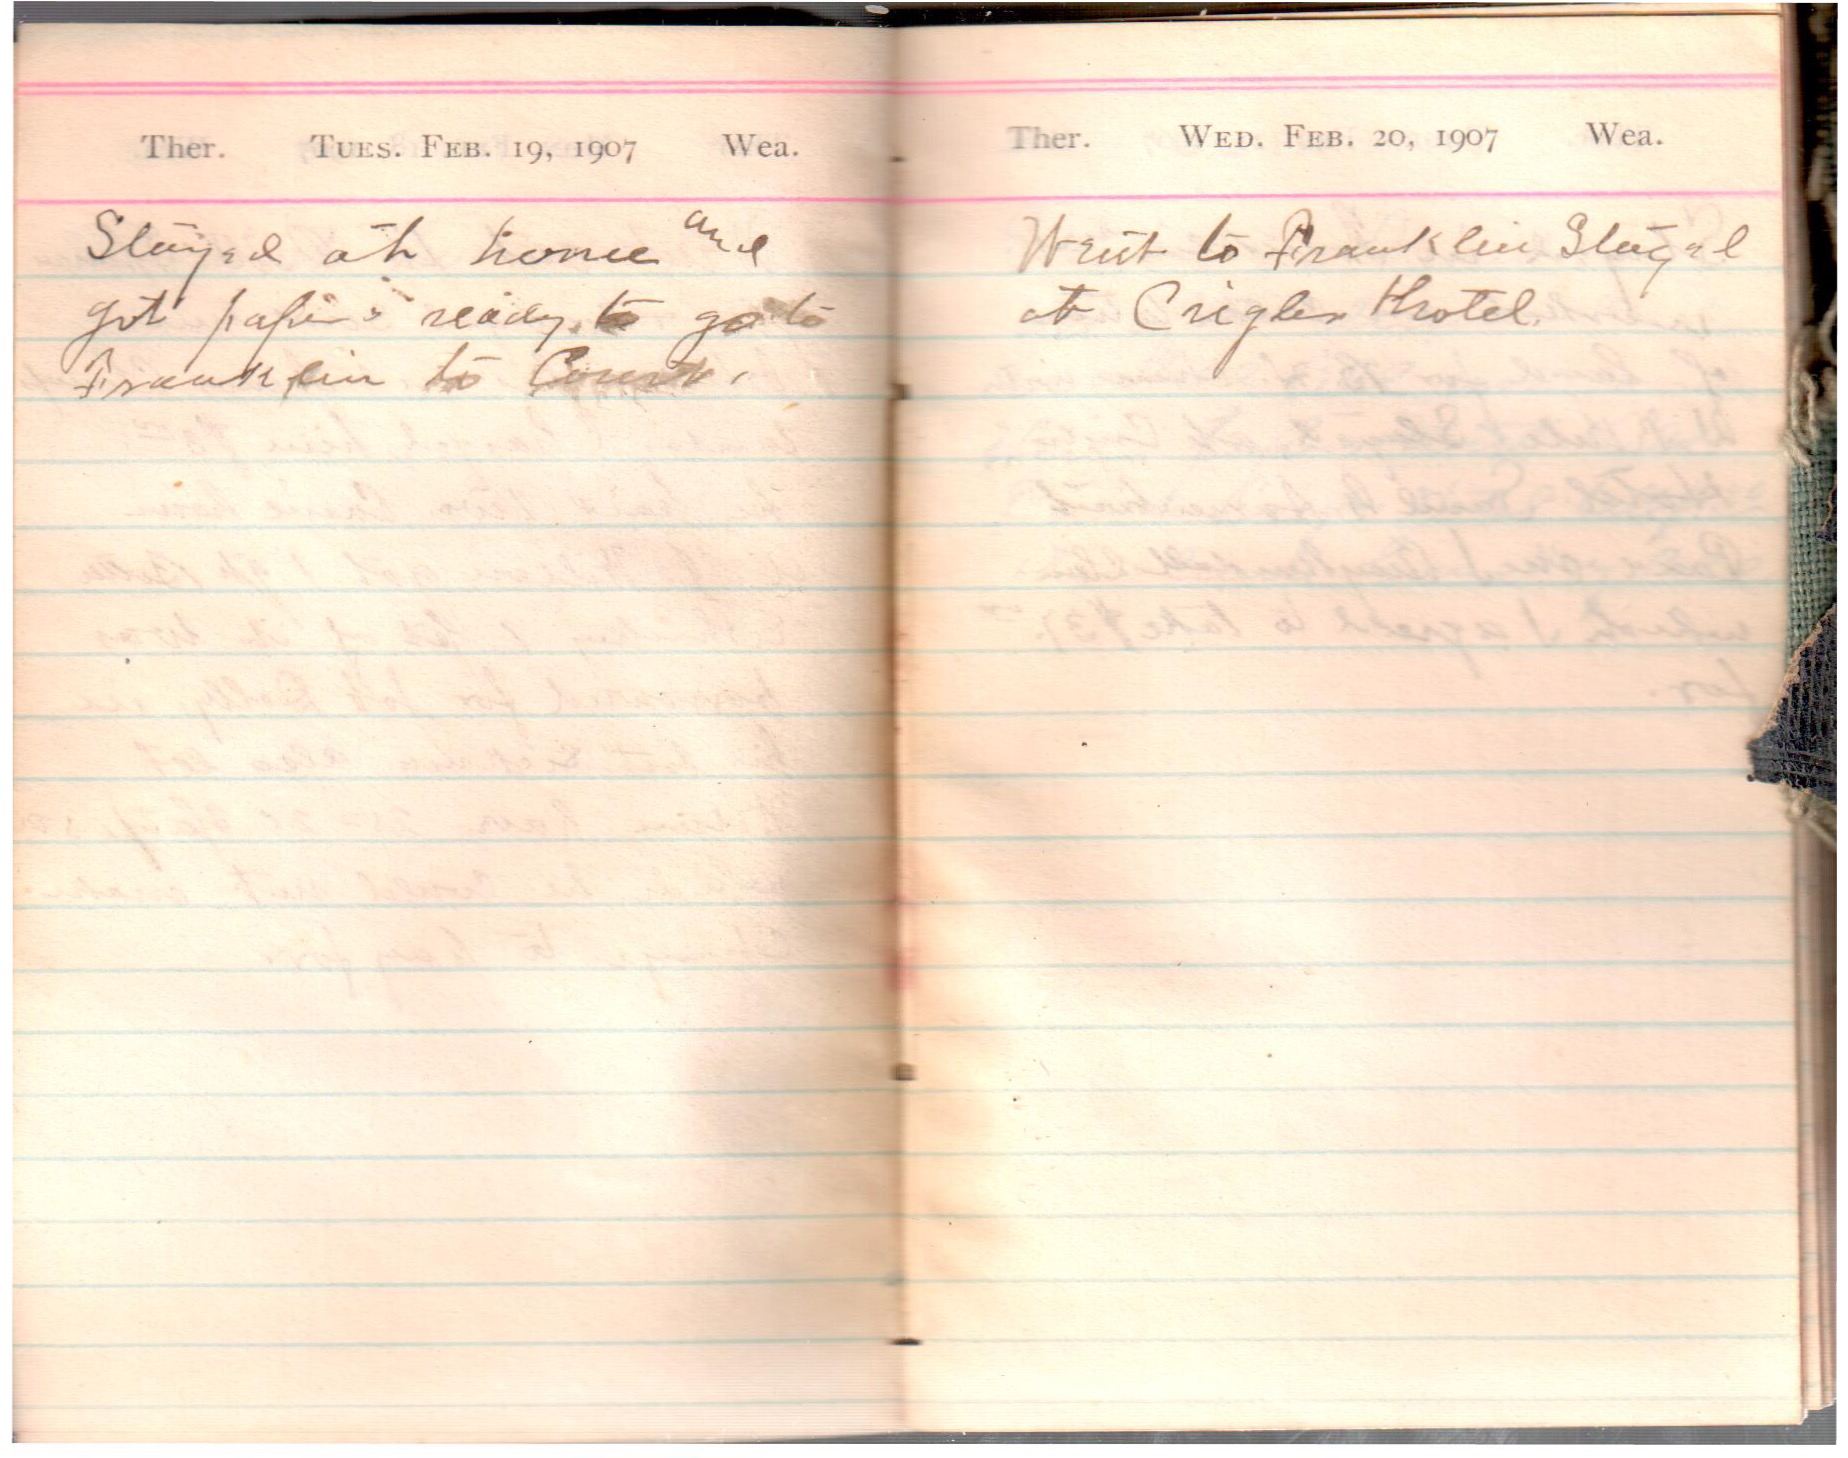 Ther. TUES. FEB. 19, 1907 Wea.
Stayed at home and
got papers ready to go to
Franklin to Court.
Ther. WED. FEB. 20, 1907 Wea.
Went to Franklin Stayed
at Crigler Hotel.